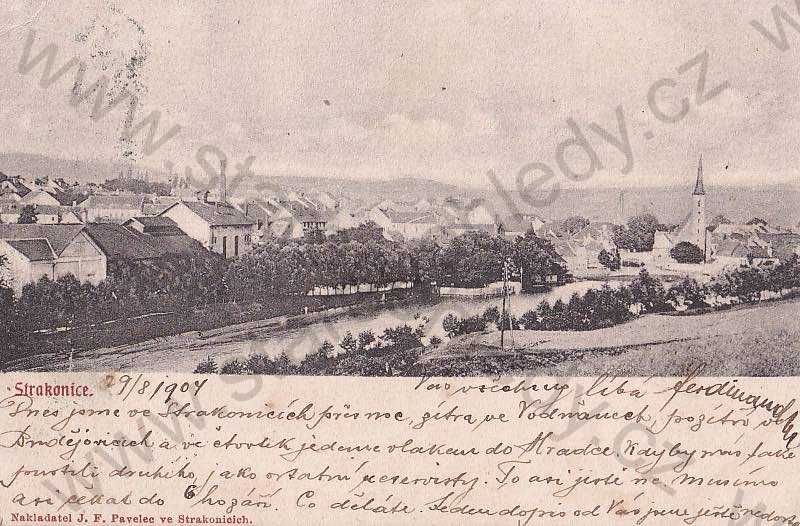 www.stare-pohledy.cz
www.stare-pohledy.cz
Strakonice.
29/8 1904
Vás všechny líbá Ferdinand
Dnes jsme ve Strakonicích přes noc, zítra ve Vodňanech, pozítří v
Budějovicích a ve čtvrtek jedeme vlakem do Hradce. Kdyby nás také
pustili druhého, jako ostatní reservisty. To asi jistě ne. Musíme
asi čekat do 6. hozáří. Co děláte. Jeden dopis od Vás jsme ještě nedos
Nakladatel J. F. Pavelec ve Strakonicích.